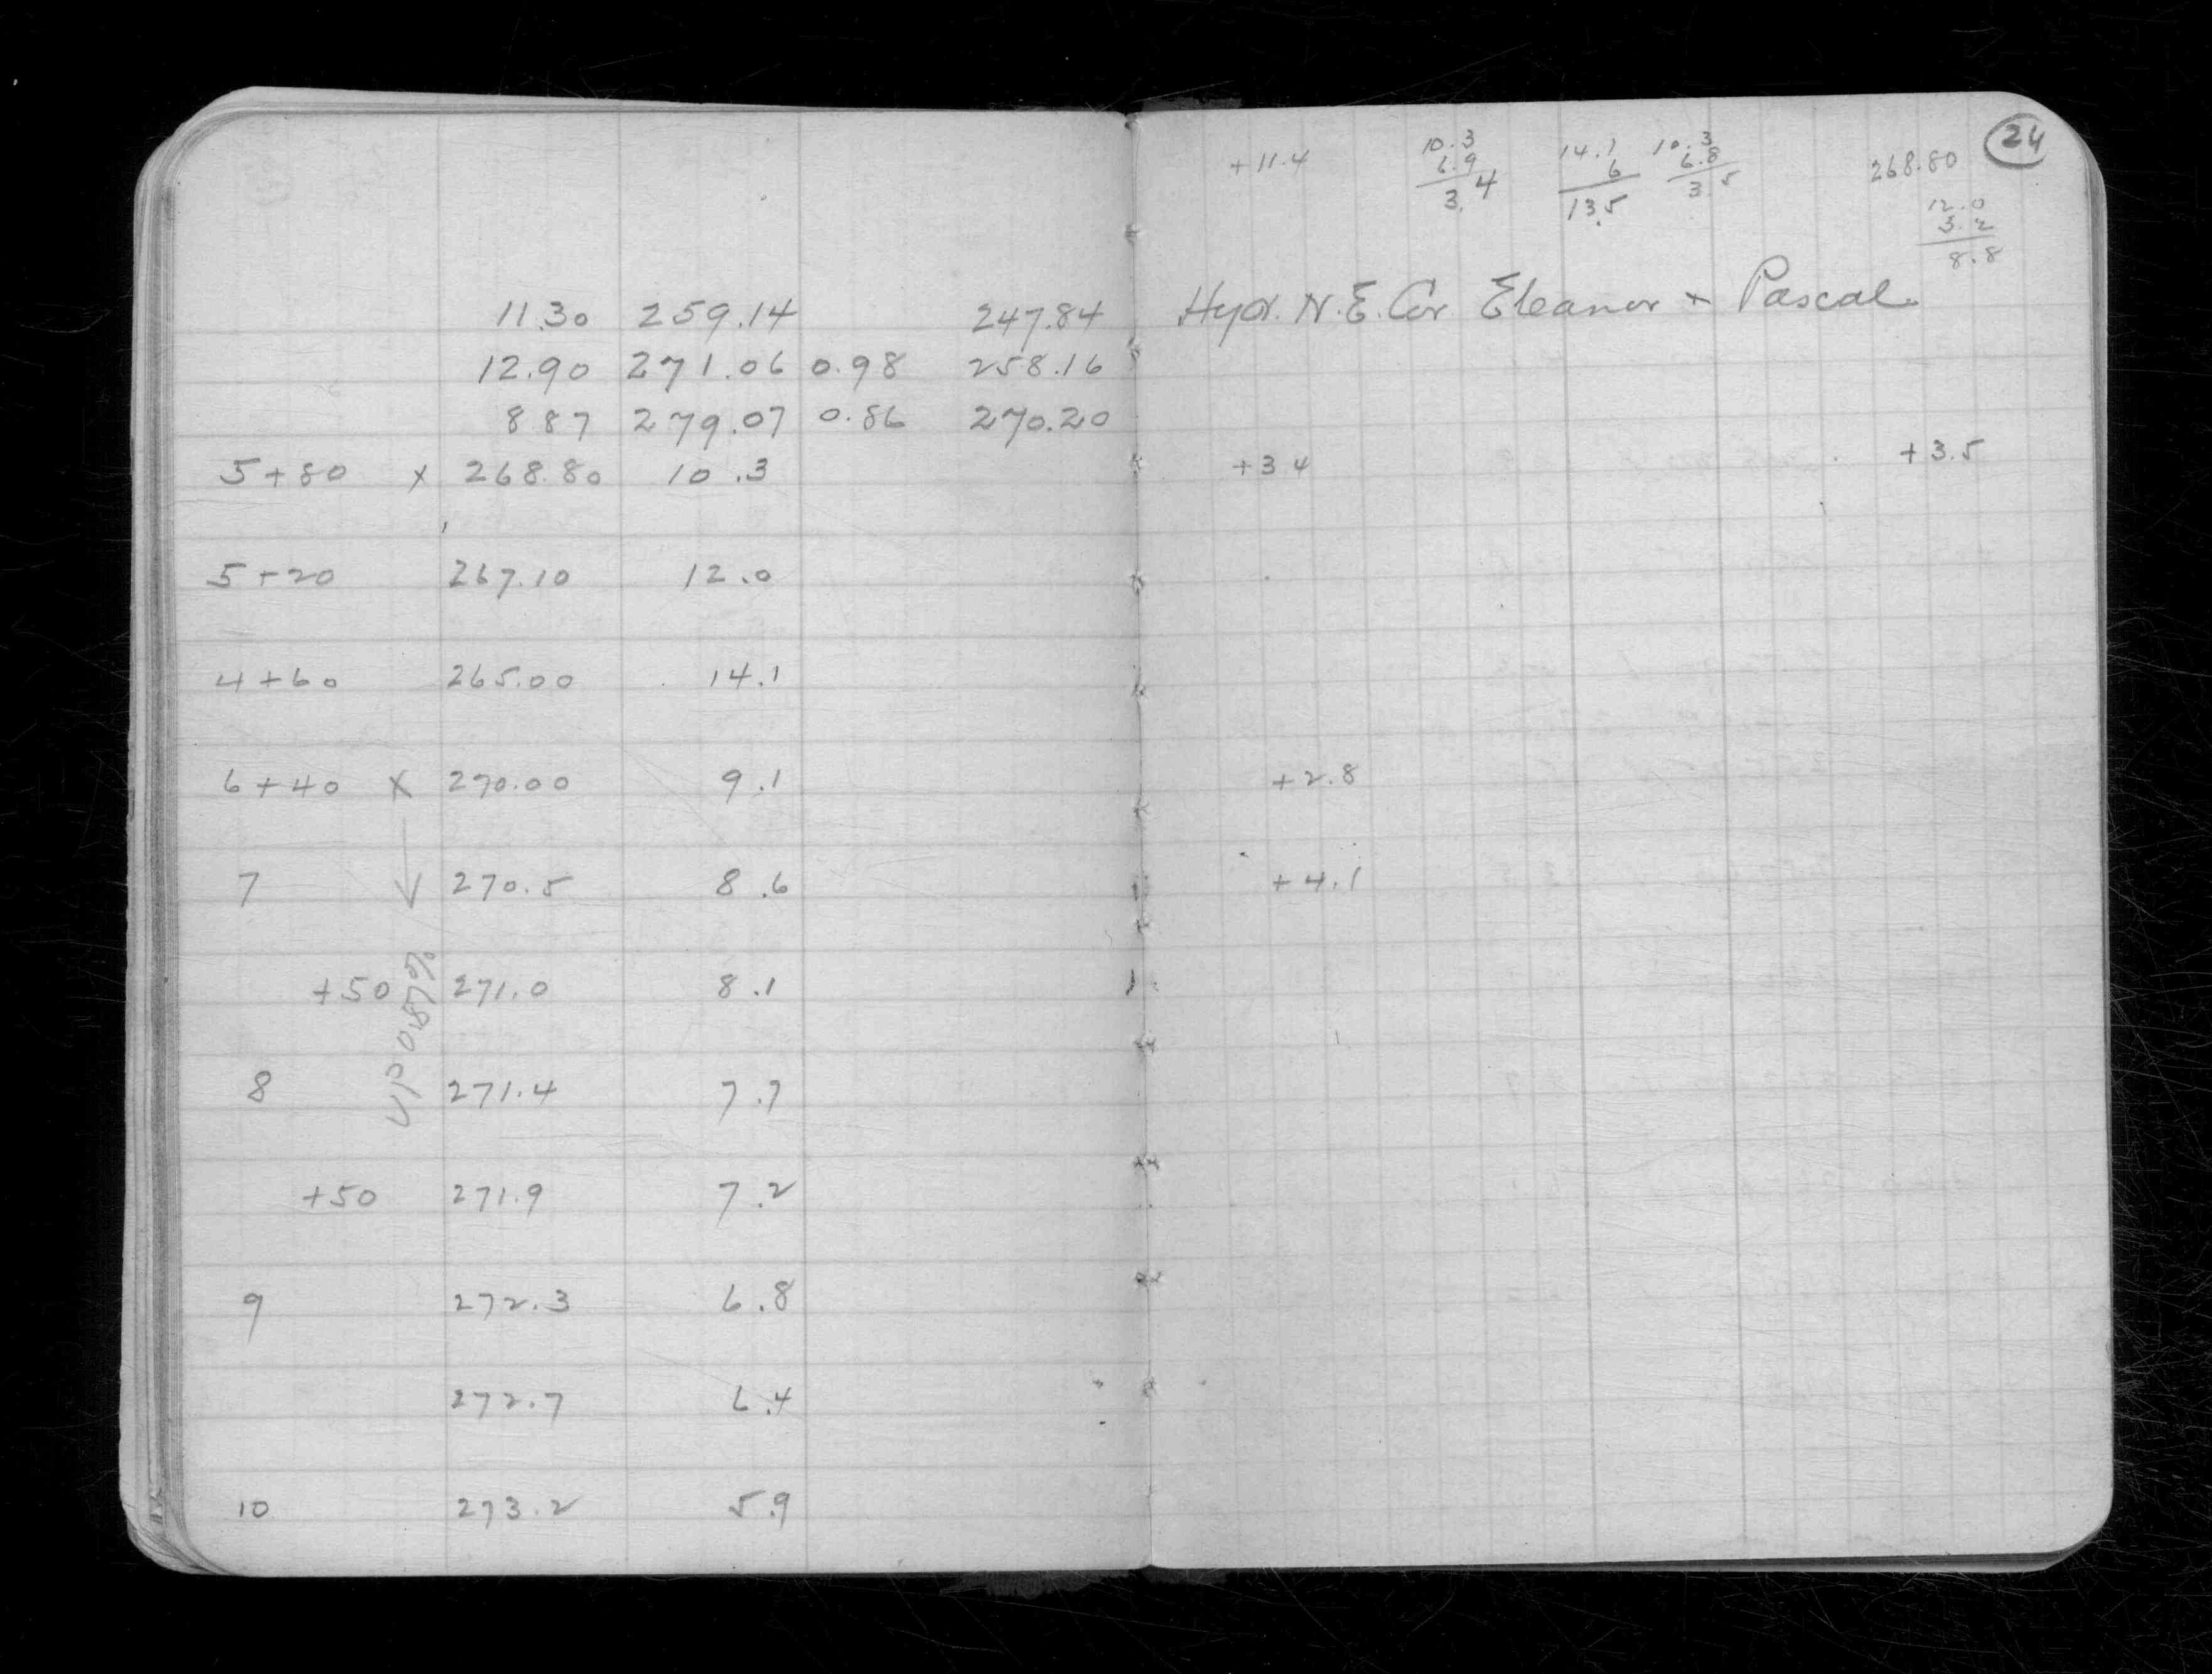 11.30 259.14 247.84
12.90 271.06 0.98 258.16
8 87 279.07 0.86 270.20
5+80 x 268.80 10.3
5+20 267.10 12.0
4+60 265.00 14.1
6+40 x 270.00 9.1
7 270.5 8.6
+50 271.0 8.1
UP 0.87%
8 271.4 7.7
+50 271.9 7.2
9 272.3 6.8
272.7 6.4
10 273.2 5.9
24
+11.4
10.3
6.9
3.4
14.1
6
13.5
10.3
6.8
3.5
268.80
12.0
3.2
8.8
Hyd. N.E. Cor Eleanor + Pascal
+3 4 +3.5
+2.8
+4.1